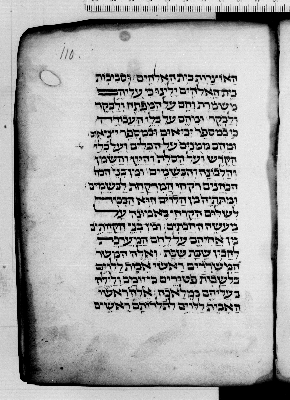 110.
האוצרות בית האלהים וסביבות
בית האלהים ילינו כי עליהם
משמרת והם על המפתח ולבקר
לבקר ומהם על כלי העבודה
כי במספר יביאום ובמספר יוציאום
ומהם ממנים על הכלים ועל כלי
הקדש ועל הסלת והיין והשמן
והלבונה והבשמים ומן בני
הכהנים רקחי המרקחת לבשמים
ומתתיה מן הלוים הוא הבכור
לשלום הקרחי באמונה על
מעשה החבתים ומן בני הקהתי
מן אחיהם על לחם המערכת
להכין שבת שבת ואלה המשררים
ראשי אבות ללוים
בלשכות פטורים כי יומם ולילה
עליהם במלאכה אלה ראשי
האבות ללוים לתלדותם ראשים